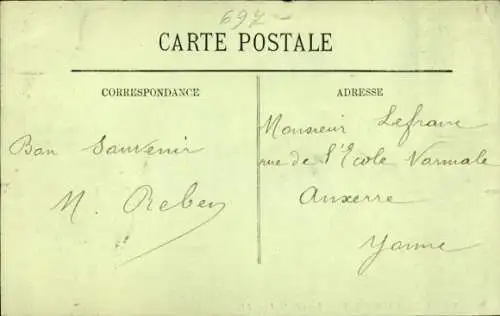 697-
CARTE POSTALE
CORRESPONDANCE
Bon Souvenir
M. Reber
ADRESSE
Monsieur Lefranc
rue de l'Ecole Normale
Auxerre
Yonne